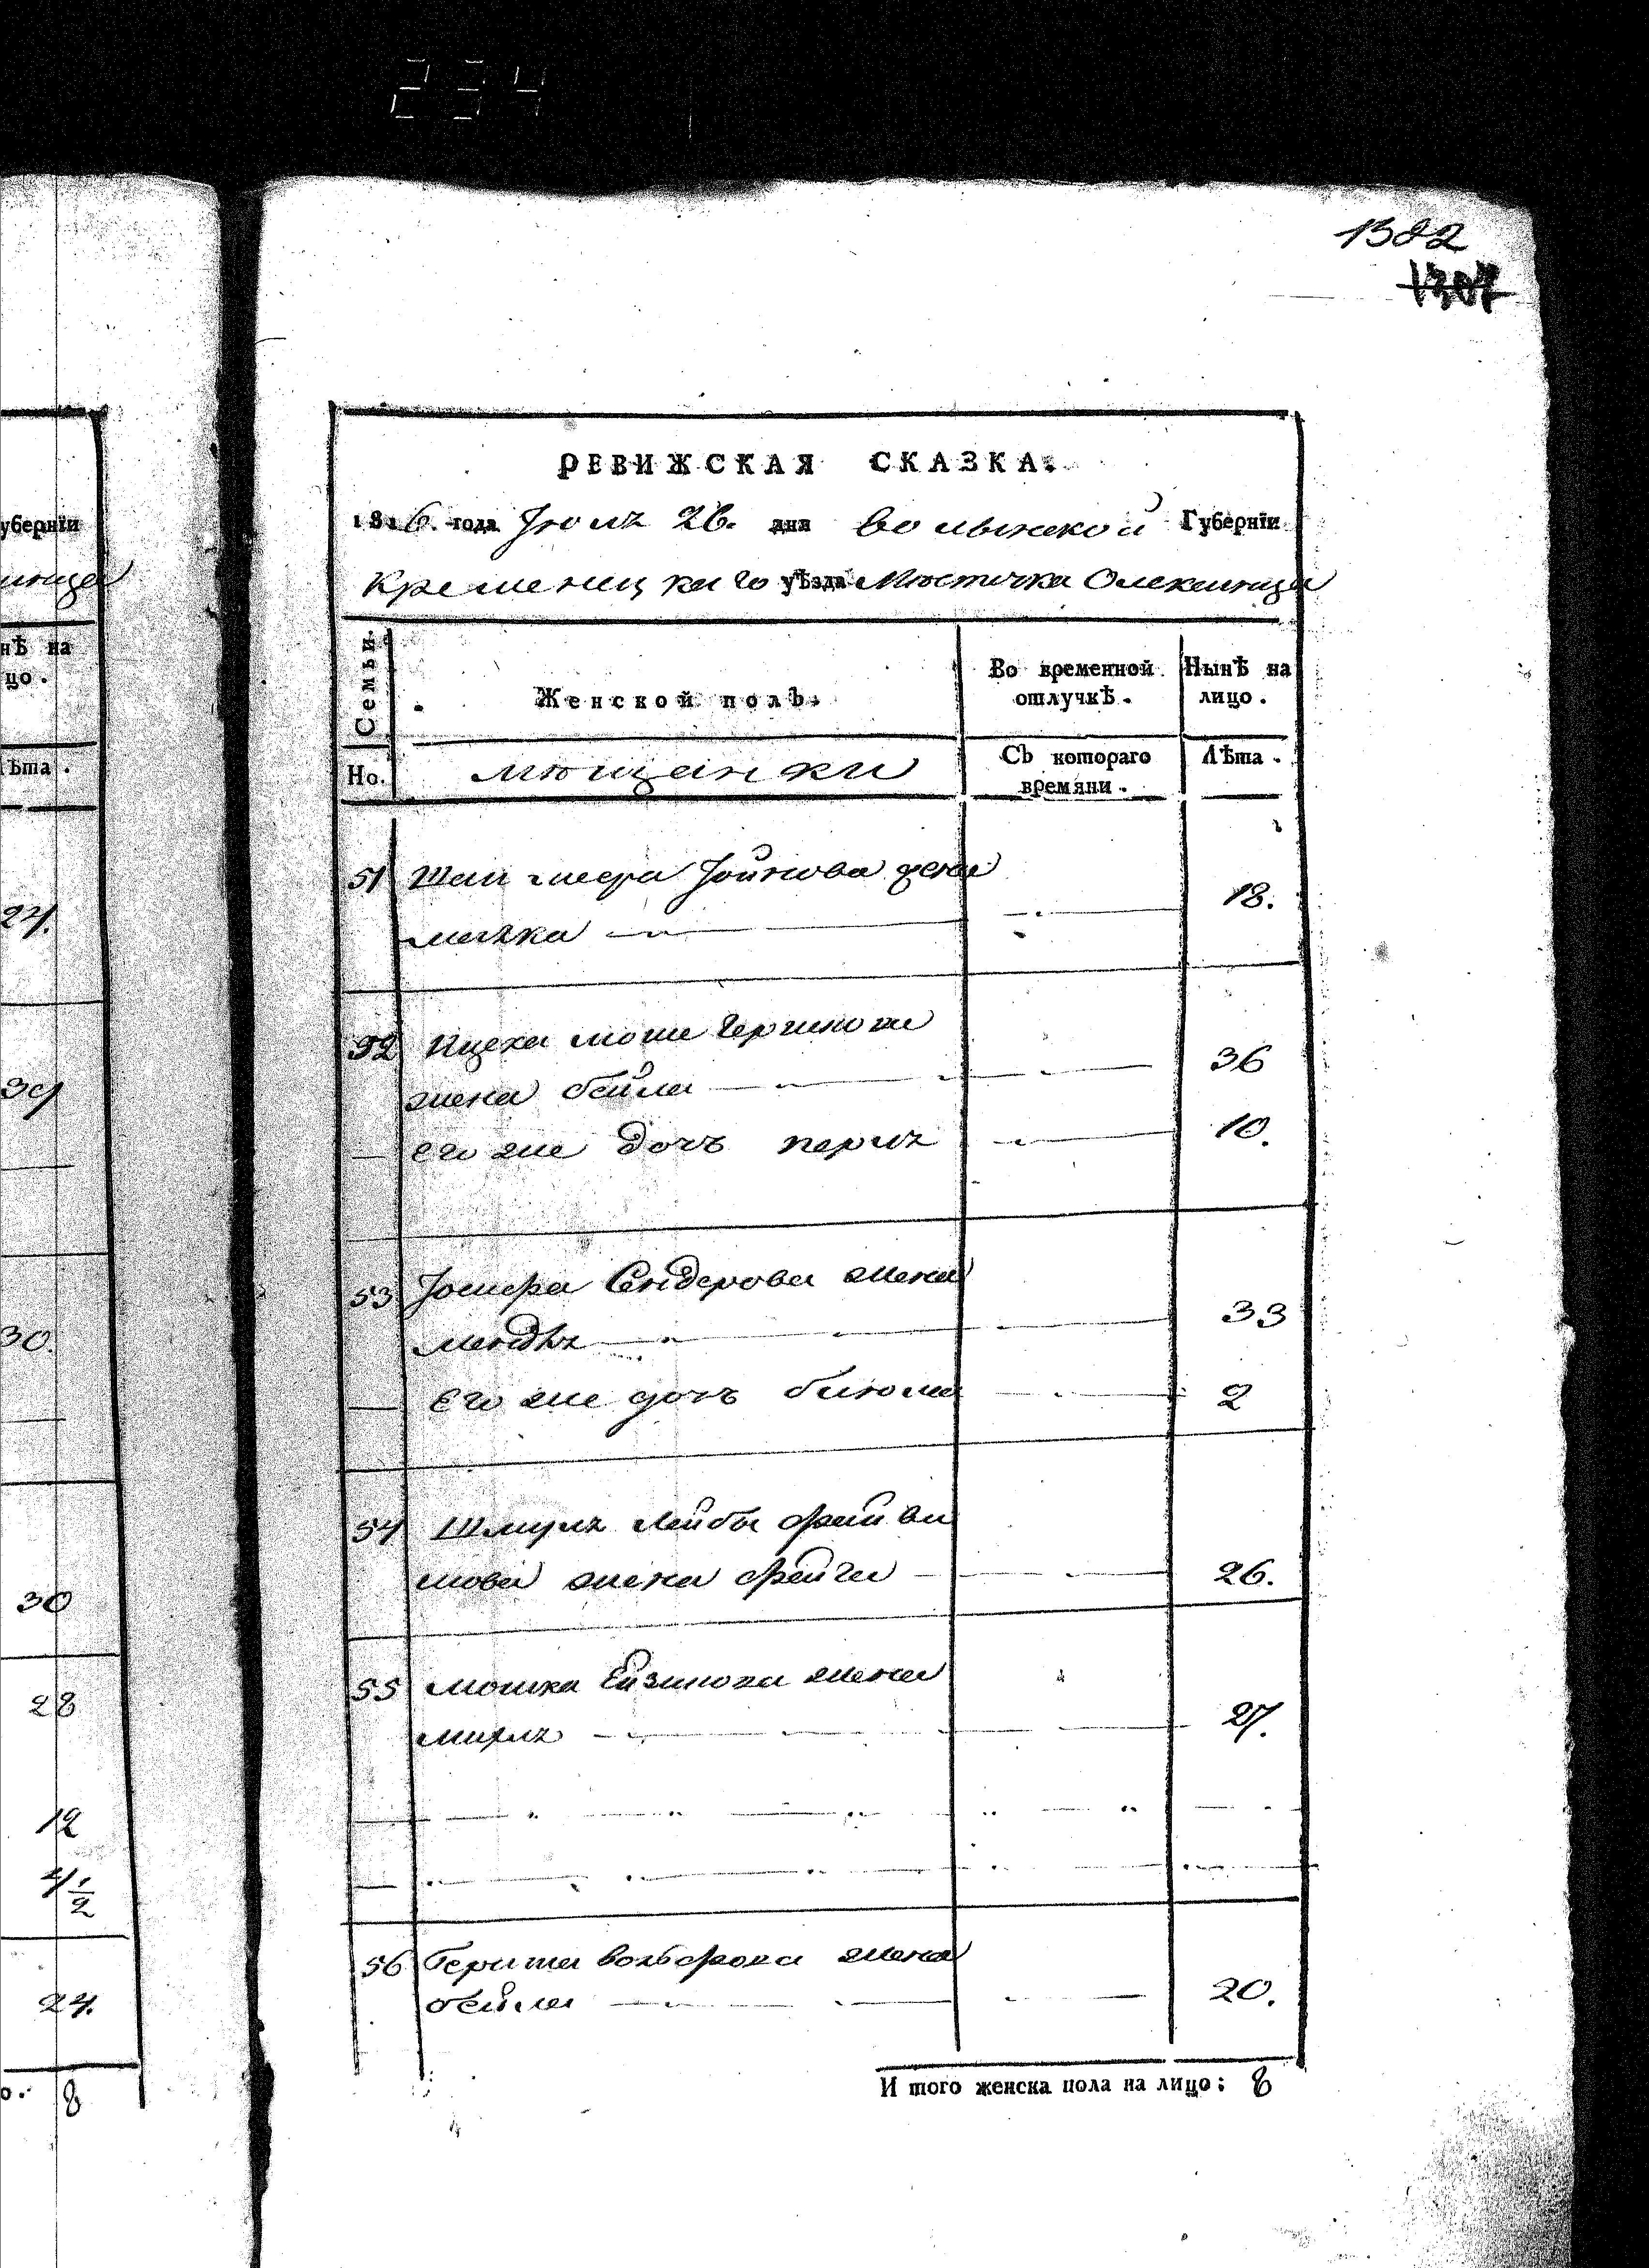 234
1382
1307
РЕВИЖСКАЯ СКАЗКА.
1816. года Іюля 26. дня волынской Губернїи
Кременецкаго уѣзда Мѣстечка Олексинца
Семьи.
Женской полъ.
Во временной отлучкѣ.
Нынѣ на лицо.
Но.
мѣщанки
Съ котораго времяни.
Лѣта.
51 Іойнова жена
18.
52 Ицека мошк Гершкова
жена бейла 36
его же дочь перля 10.
53 Іосифа Сендерова жена
33
Его же дочь блюма 2
54 Шмуля Лейбы файви
шова жена фейга 26.
55 мошка Ейзикова жена
мирля 27.
56 Герша вольфова жена
бейла 20.
И того женска пола на лицо: 8
убернїи
инца
нѣ на
цо.
ѣта.
24.
39
30.
30
28
12
4 1/2
24.
о. 8